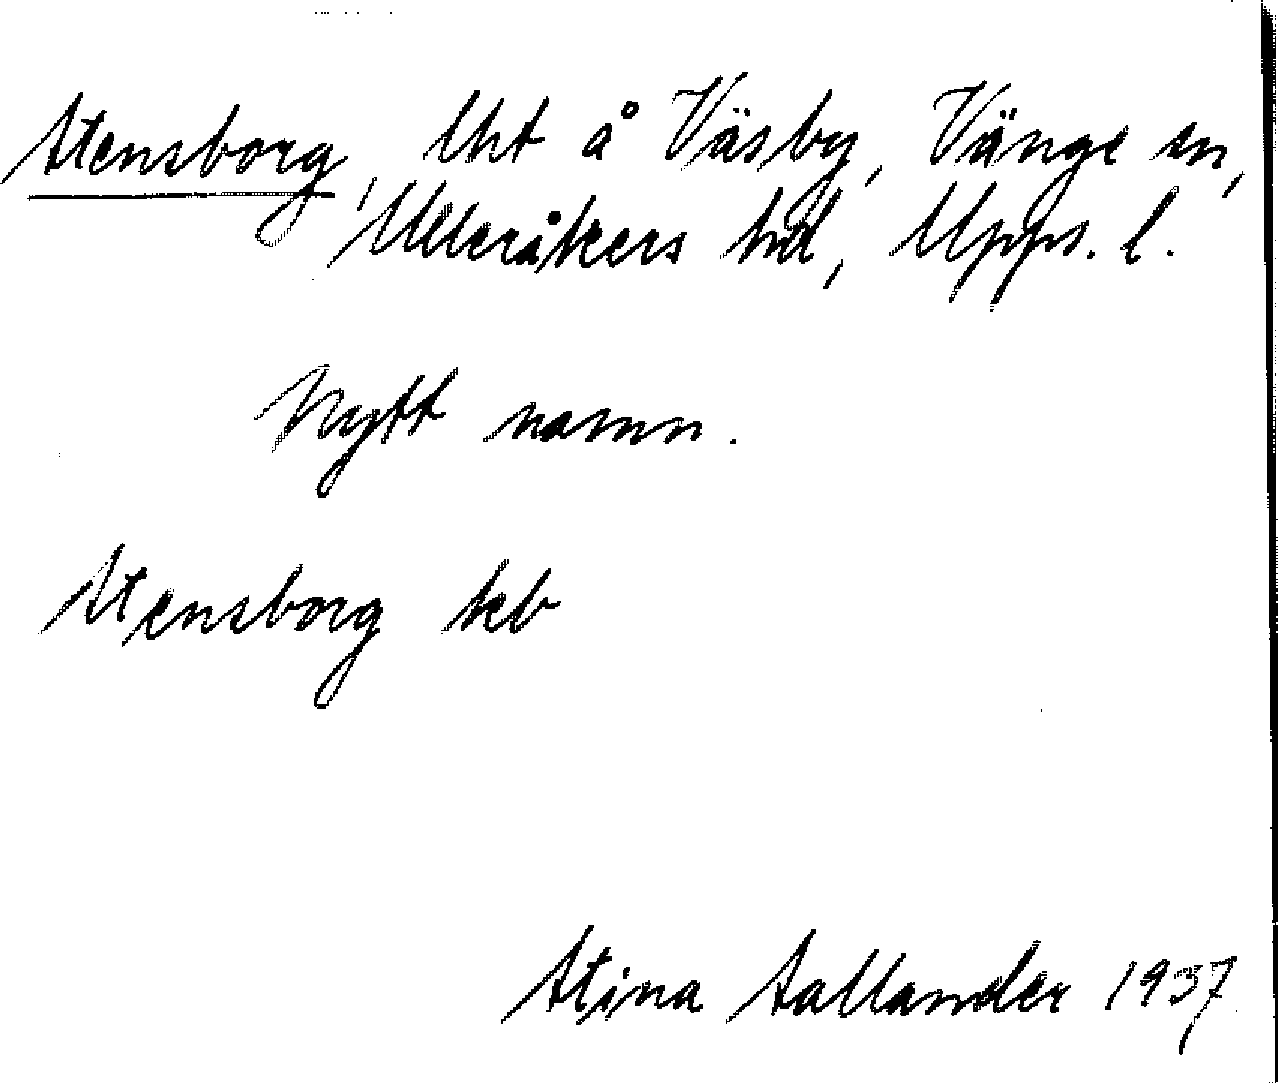 Stensborg, lht å Väsby, Vänge sn,
Ulleråkers hd, Upps. l.
Nytt namn.
Stensborg kb
Stina Sallander 1937